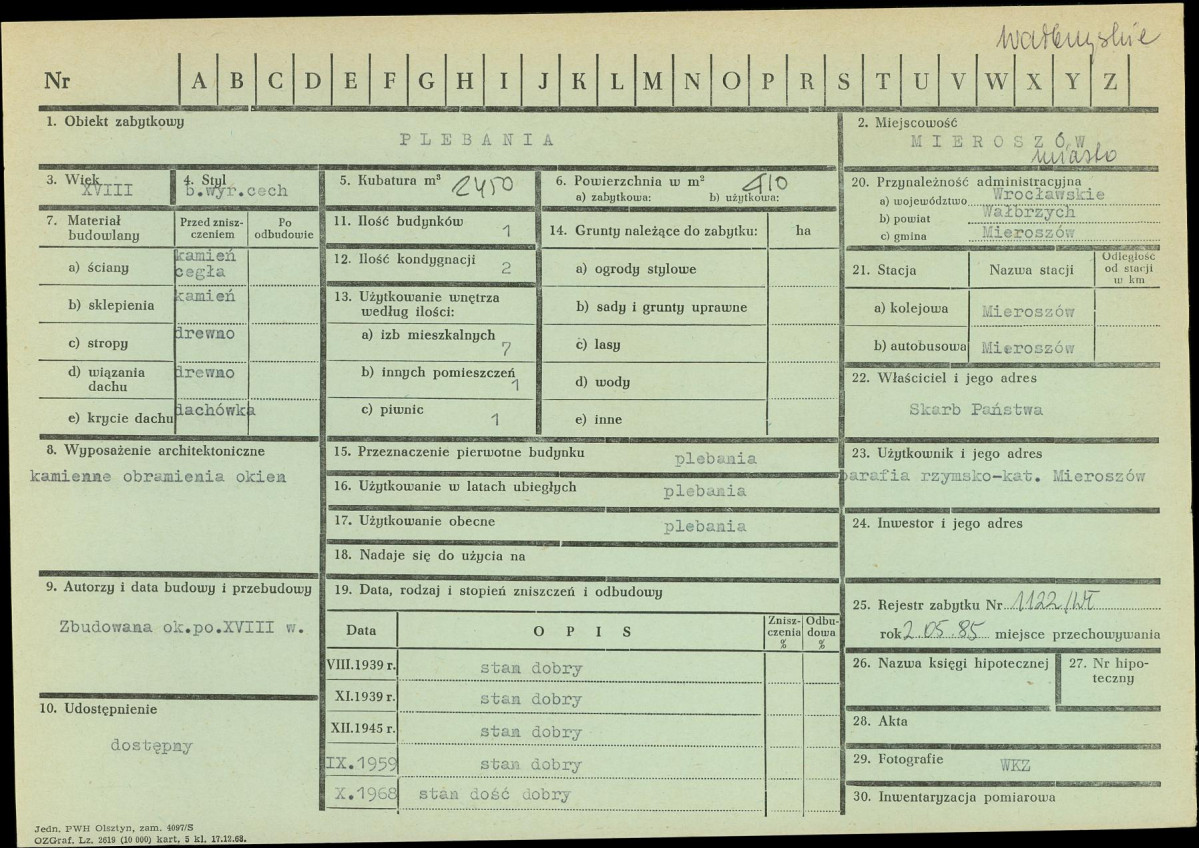 wałbrzyskie
Nr A B C D E F G H I J K L M N O P R S T U V W X Y Z
1. Obiekt zabytkowy
PLEBANIA
2. Miejscowość
MIEROSZÓW
miasto
3. Wiek
XVIII
4. Styl
b.wyr.cech
5. Kubatura m³ 2450
6. Powierzchnia w m² 410
a) zabytkowa: b) użytkowa:
7. Materiał budowlany
Przed zniszczeniem
Po odbudowie
a) ściany kamień cegła
b) sklepienia kamień
c) stropy drewno
d) wiązania dachu drewno
e) krycie dachu dachówka
8. Wyposażenie architektoniczne
kamienne obramienia okien
9. Autorzy i data budowy i przebudowy
Zbudowana ok.po.XVIII w.
10. Udostępnienie
dostępny
11. Ilość budynków 1
12. Ilość kondygnacji 2
13. Użytkowanie wnętrza
według ilości:
a) izb mieszkalnych 7
b) innych pomieszczeń 1
c) piwnic 1
14. Grunty należące do zabytku: ha
a) ogrody stylowe
b) sady i grunty uprawne
c) lasy
d) wody
e) inne
15. Przeznaczenie pierwotne budynku plebania
16. Użytkowanie w latach ubiegłych plebania
17. Użytkowanie obecne plebania
18. Nadaje się do użycia na
19. Data, rodzaj i stopień zniszczeń i odbudowy
Data OPIS Zniszczenia % Odbudowa %
VIII.1939 r. stan dobry
XI.1939 r. stan dobry
XII.1945 r. stan dobry
IX.1959 stan dobry
X.1968 stan dość dobry
20. Przynależność administracyjna
a) województwo Wrocławskie
b) powiat Wałbrzych
c) gmina Mieroszów
21. Stacja Nazwa stacji Odległość od stacji w km
a) kolejowa Mieroszów
b) autobusowa Mieroszów
22. Właściciel i jego adres
Skarb Państwa
23. Użytkownik i jego adres
parafia rzymsko-kat. Mieroszów
24. Inwestor i jego adres
25. Rejestr zabytku Nr 1122/Wł
rok 2.05.85 miejsce przechowywania
26. Nazwa księgi hipotecznej
27. Nr hipoteczny
28. Akta
29. Fotografie WKZ
30. Inwentaryzacja pomiarowa
Jedn. PWH Olsztyn, zam. 4097/S
OZGraf. Lz. 2619 (10 000) kart. 5 kl. 17.12.68.